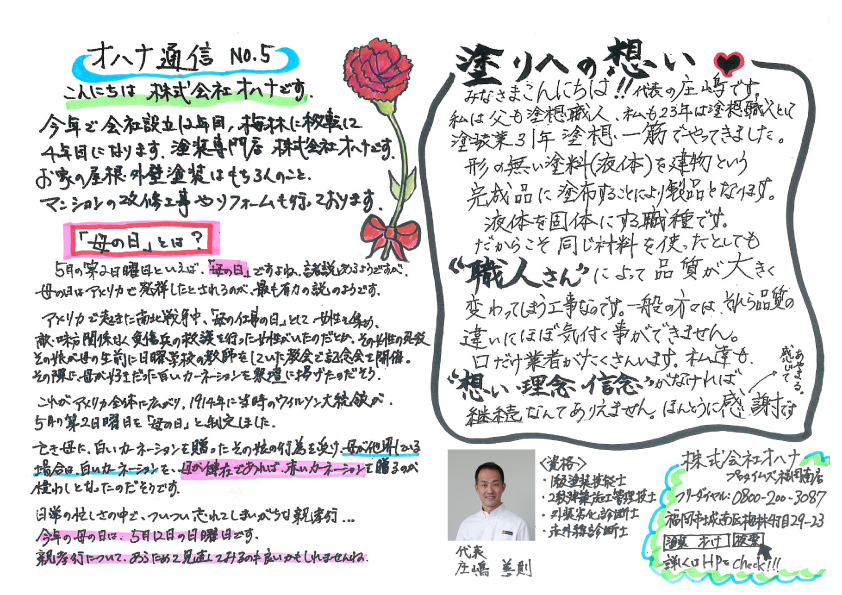 オハナ通信 NO.5
こんにちは 株式会社オハナです.
今年で会社設立12年目, 梅林に移転して
4年目になります. 塗装専門店 株式会社オハナです.
お家の屋根・外壁塗装はもちろんのこと、
マンションの改修工事やリフォームも行っております.
「母の日」とは?
5月の第2日曜日といえば、「母の日」ですよね、諸説あるようですが、
母の日はアメリカで発祥したとされるのが、最も有力の説のようです.
アメリカで起きた南北戦争中、「母の仕事の日」として女性を集め、
敵・味方関係なく負傷兵の救護を行った女性がいたのだとか、その女性の死後
その娘が母の生前に日曜学校の教師をしていた教会で記念会を開催。
その際に、母が好きだった白いカーネーションを祭壇に捧げたのだそう.
これがアメリカ全体に広がり, 1914年に当時のウィルソン大統領が、
5月の第2日曜日を「母の日」と制定しました.
亡き母に、白いカーネーションを贈ったその娘の行為を受け、母が他界している
場合は、白いカーネーションを、母が健在であれば、赤いカーネーションを贈るのが
慣わしとなったのだそうです.
日常の忙しさの中で、ついつい忘れてしまいがちな親孝行...
今年の母の日は、5月12日の日曜日です.
親孝行について、あらためて見直してみるのも良いかもしれませんね.
塗りへの想い
みなさまこんにちは!! 代表の庄嶋です。
私は父も塗想職人、私も23年は塗想職人として
塗装業31年 塗想一筋でやってきました。
形の無い塗料(液体)を建物という
完成品に塗布することにより製品となります。
液体を固体にする職種です。
だからこそ 同じ材料を使ったとしても
"職人さん"によって品質が大きく
変わってしまう工事なのです。一般の方々は、それら品質の
違いにほぼ気付く事ができません。
口だけ業者がたくさんいます。私達も、
"想い・理念・信念"がなければ
継続なんてありえません。ほんとうに感謝です
代表
庄嶋 善則
<資格>
・1級塗装技能士
・2級建築施工管理技士
・外装劣化診断士
・赤外線診断士
株式会社オハナ
プロタイムズ福岡南店
フリーダイヤル:0800-200-3087
福岡市城南区梅林4丁目29-23
塗装 オハナ 検索
詳しくはHPをcheck!!!